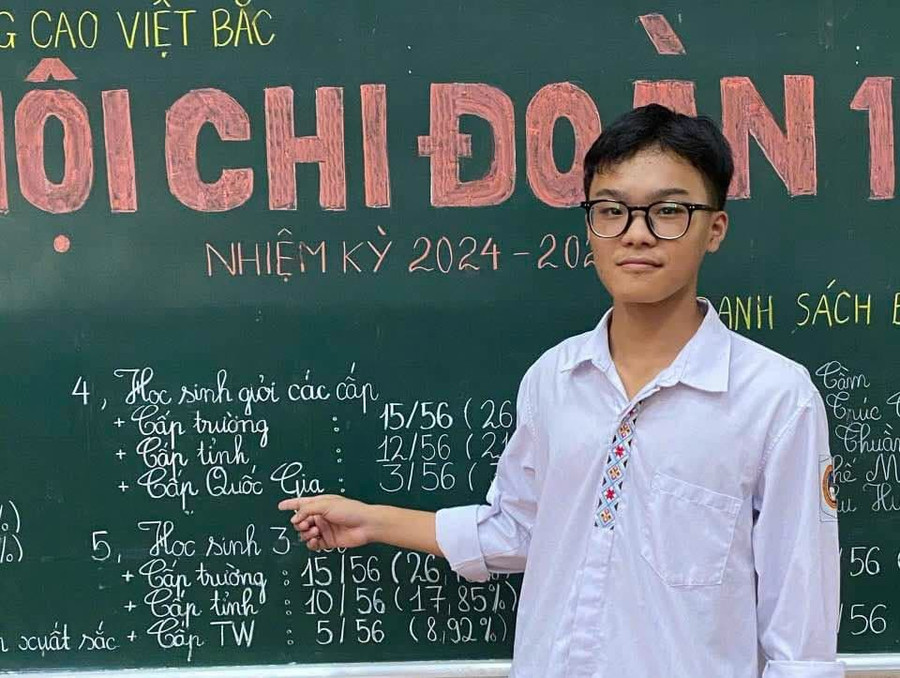 G CAO VIỆT BẮC
HỘI CHI ĐOÀN 1
NHIỆM KỲ 2024 - 202
ANH SÁCH B
4, Học sinh giỏi các cấp
+ Cấp trường : 15/56 (26
+ Cấp tỉnh : 12/56 (21
+ Cấp Quốc Gia : 3/56 (
5, Học sinh 3
+ Cấp trường : 15/56 (26,
+ Cấp tỉnh : 10/56 (17,85%)
xuất sắc + Cấp TW : 5/56 (8,92%)
)
%)
Tâm
Trúc
Thuần
hế M
/56
/56